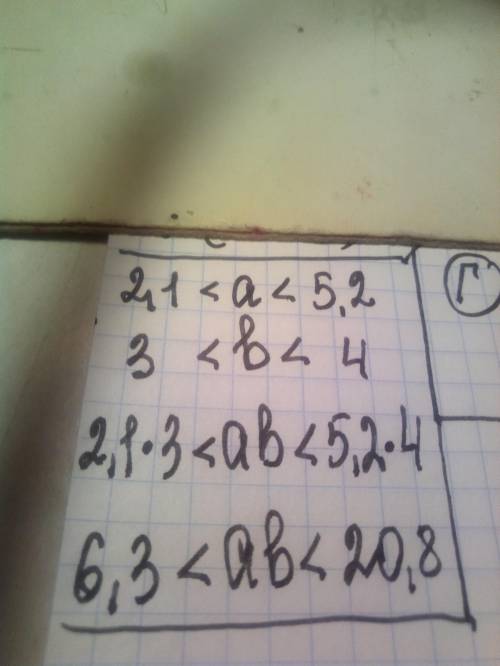 2,1 < a < 5,2
Г
3 < b < 4
2,1·3 < ab < 5,2·4
6,3 < ab < 20,8